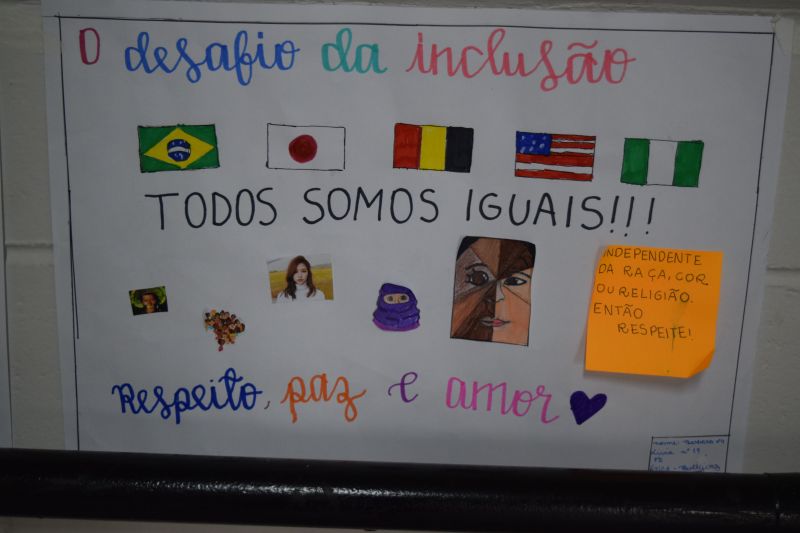 O desafio da inclusão
TODOS SOMOS IGUAIS!!!
INDEPENDENTE
DA RAÇA, COR
OU RELIGIÃO.
ENTÃO
RESPEITE!
Respeito, paz e amor
nome:
nº 19